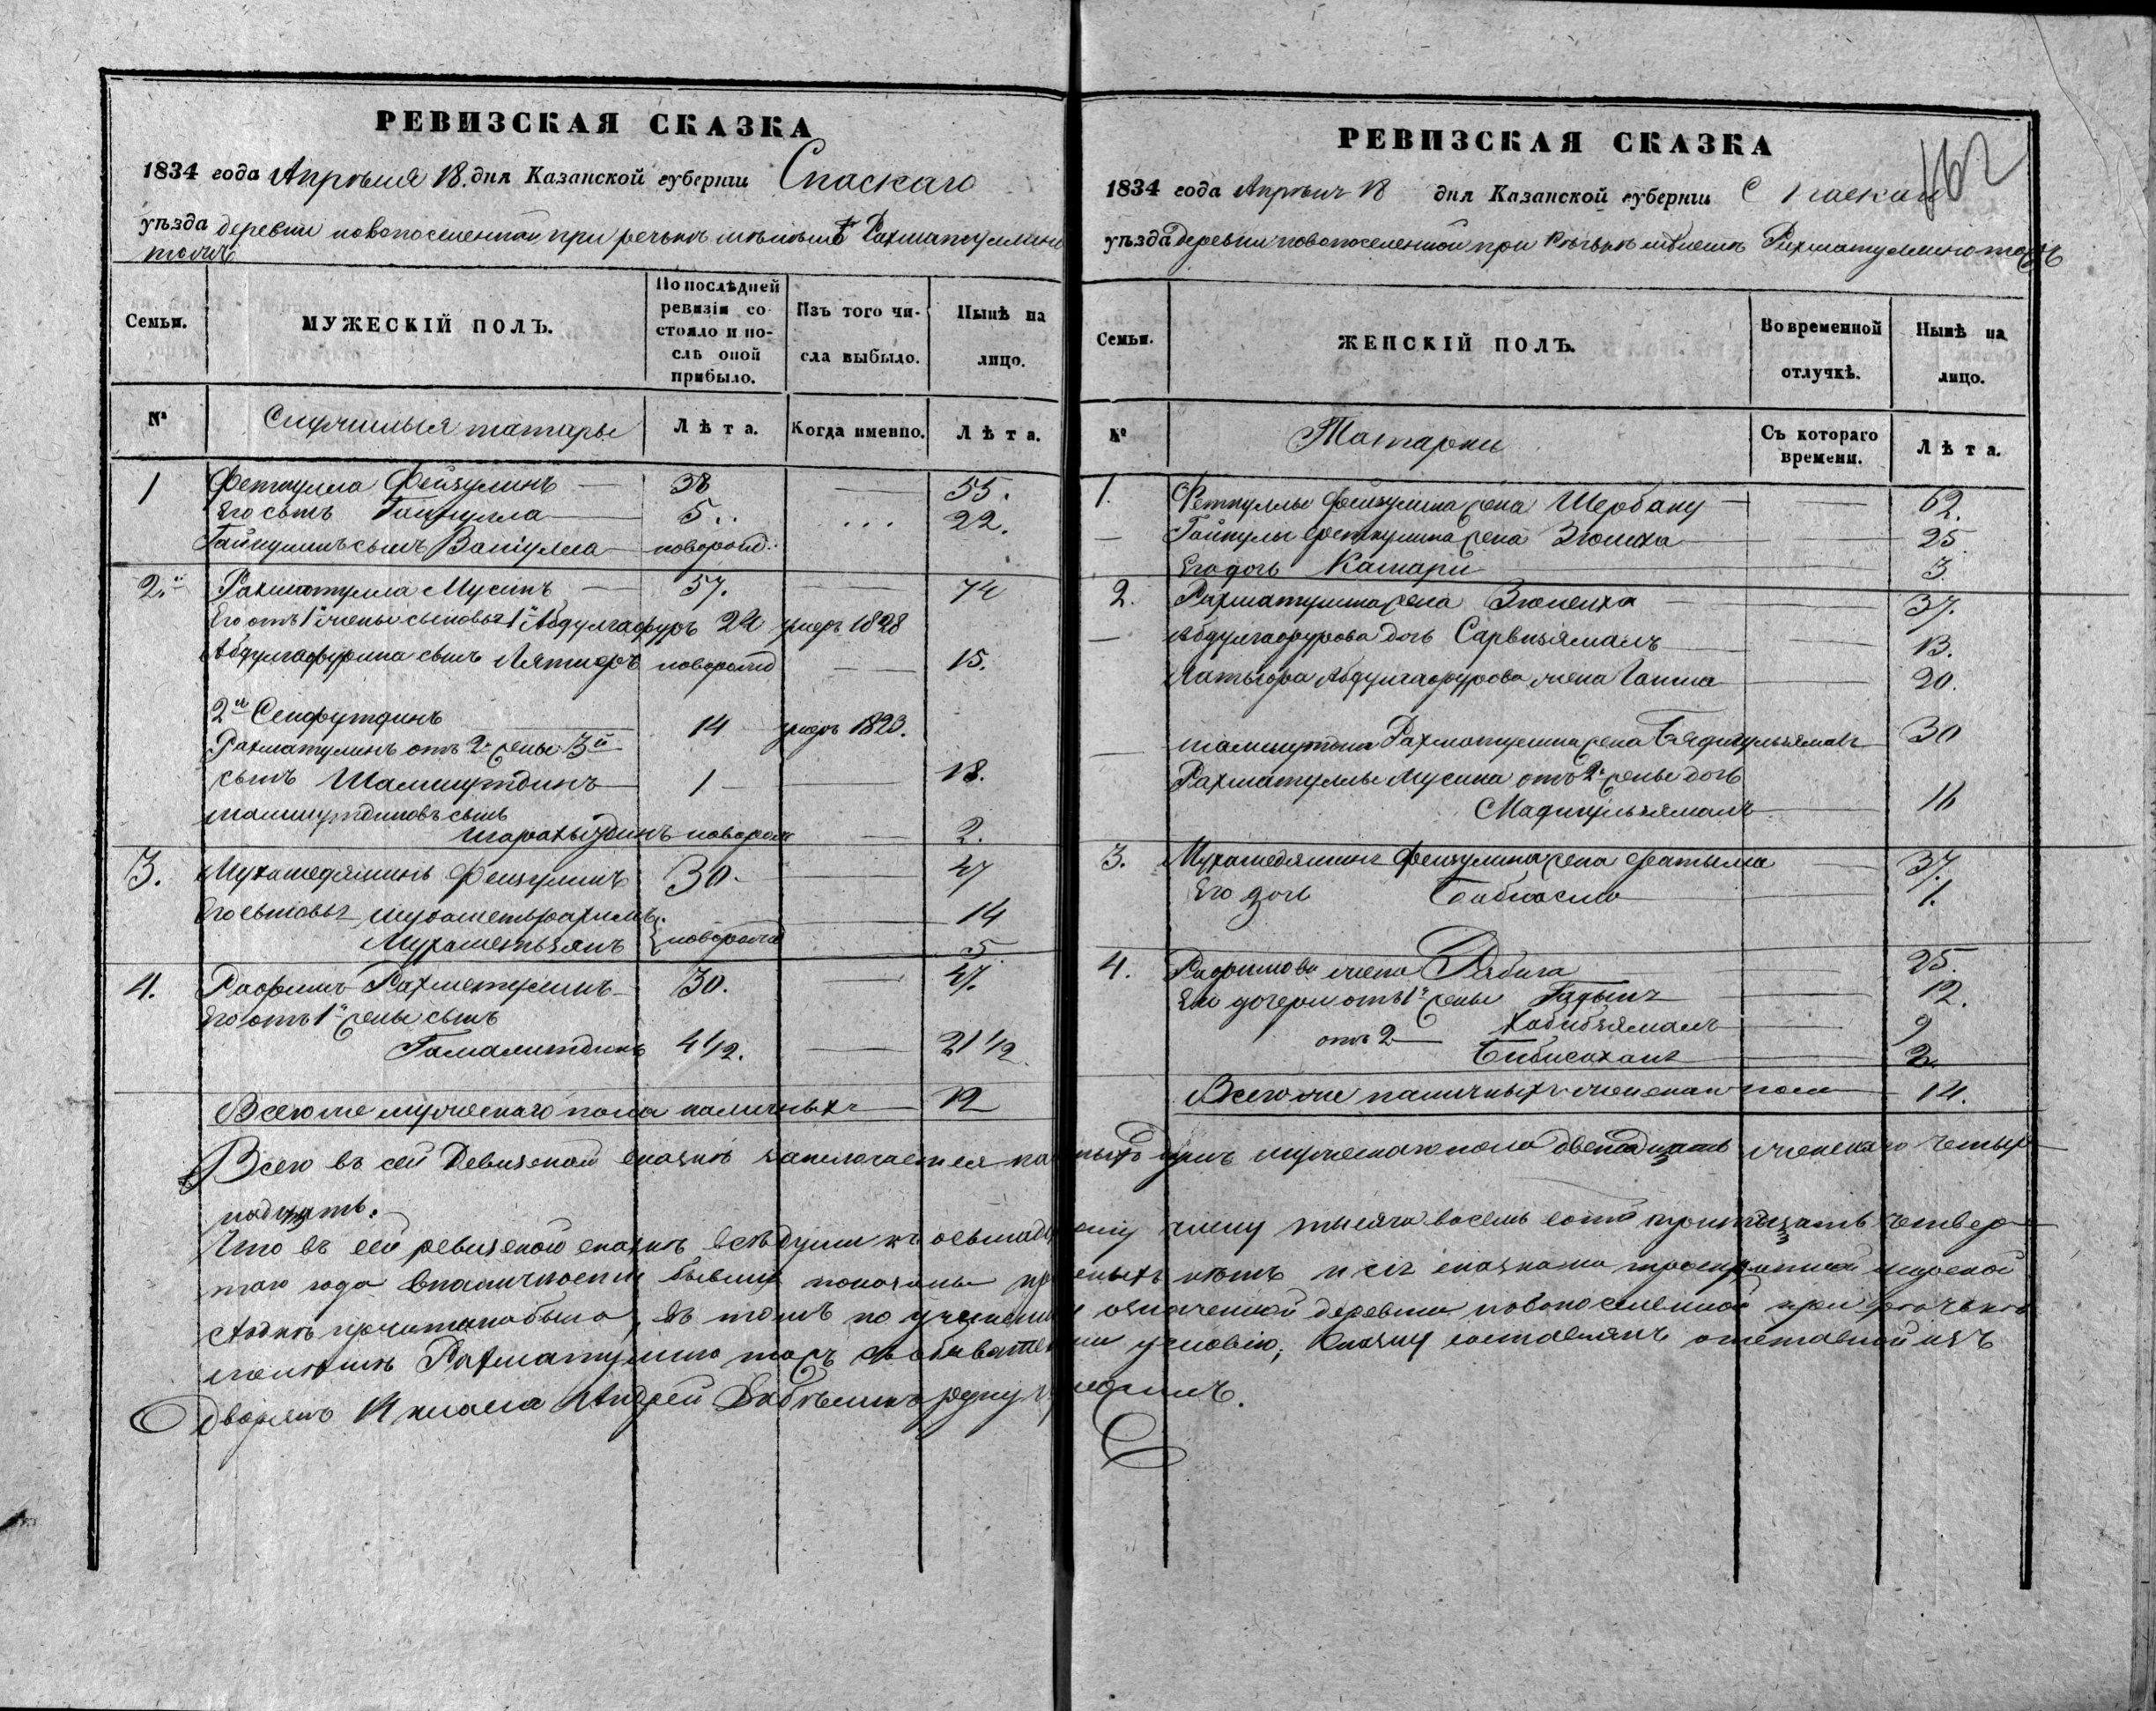 РЕВИЗСКАЯ СКАЗКА
1834 года Апрѣля 18. дня Казанской губерніи Спаскаго
уѣзда деревни новопоселенной при речькѣ Рахматуллино
тожъ
Семьи.
МУЖЕСКІЙ ПОЛЪ.
По послѣдней ревизіи состояло и послѣ оной прибыло.
Изъ того числа выбыло.
Нынѣ на лицо.
№
Служилыя татары
Лѣта.
Когда именно.
Лѣта.
1 Феткулла Фейзулинъ 38 — 55.
Его сынъ Гайнулла 5.. ... 22.
Гайнулинъ сынъ Валіулла новорожд.
2й Рахматулла Мусинъ 57. — 74
Его отъ 1й жены сыновья 1й Абдулгафуръ 24 умеръ 1828
Абдулгафурина сынъ новорожд — 15.
2й Сейфутдинъ 14 умеръ 1823.
Рахматулинъ отъ 2й жены 3й
сынъ Шамшутдинъ 1 — 18.
шамшутдиновъ сынъ
новорож — 2.
3. Мухамедяминъ Фейзулинъ 30. — 47
Его сыновья 14
Мухаметьзянъ новорожд 5
4. Рафикъ Рахметулинъ 30. — 47.
Его отъ 1й жены сынъ
Гамалитдинъ 4 1/2. — 21 1/2
Всего же мужескаго пола наличныхъ 12
РЕВИЗСКАЯ СКАЗКА
162
1834 года Апрѣля 18 дня Казанской губерніи Спаскаго
уѣзда деревни новопоселенной при речькѣ Рахматуллино тожъ
Семьи.
ЖЕНСКІЙ ПОЛЪ.
Во временной отлучкѣ.
Нынѣ на лицо.
№
Татарки
Съ котораго времени.
Лѣта.
1. Феткуллы Фейзулина жена Шербану 62.
Гайнулы Феткулина жена Зюлиха 25
Его дочь Камари 3
2. Рахматулина жена Зюлейха 37.
Абдулгафурова дочь Сарвизямалъ 13.
Абдулгафурова жена 20.
шамшутдина Рахматулина жена 30
Рахматуллы Мусина отъ 2й жены дочь
16
3. Мухамедямина Фейзулина жена Фатыма 37.
Его дочь 1.
4. Рафикова жена Рябига 25.
Его дочери отъ 1й жены 12.
отъ 2 Хабибзямалъ 9
2.
Всего же наличныхъ женскаго пола 14.
Всего въ сей Ревизской сказкѣ заключается душъ мужескаго пола двенадцать женскаго четыр
надцать.
Что въ сей ревизской сказкѣ все души къ числу тысяча восемь сотъ тридцать четвер
таго года вналичности бывшія показаны нѣтъ и сія сказка мирской
читана была, въ томъ по означенной деревни новопоселенной при речькѣ
Рахматулино тожъ условію, сказку составлялъ отставной изъ
Дворянъ 14 класа Андрей руку приложилъ.